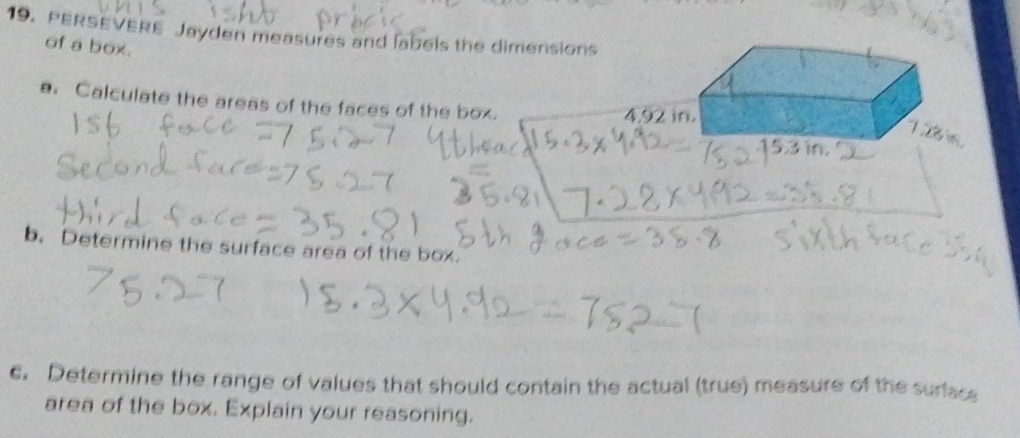 this isht precis
19. PERSEVERE Jayden measures and labels the dimensions
of a box.
a. Calculate the areas of the faces of the box.
4.92 in.
7.28 in.
15.3 in. 2
1st face =75.27 4th face 15.3x4.92= 752
Second face=75.27 = 35.81 7.28x4.92=35.81
third face = 35.81 5th face = 35.8 sixth face
b. Determine the surface area of the box.
75.27 15.3x4.92=7527
c. Determine the range of values that should contain the actual (true) measure of the surface
area of the box. Explain your reasoning.